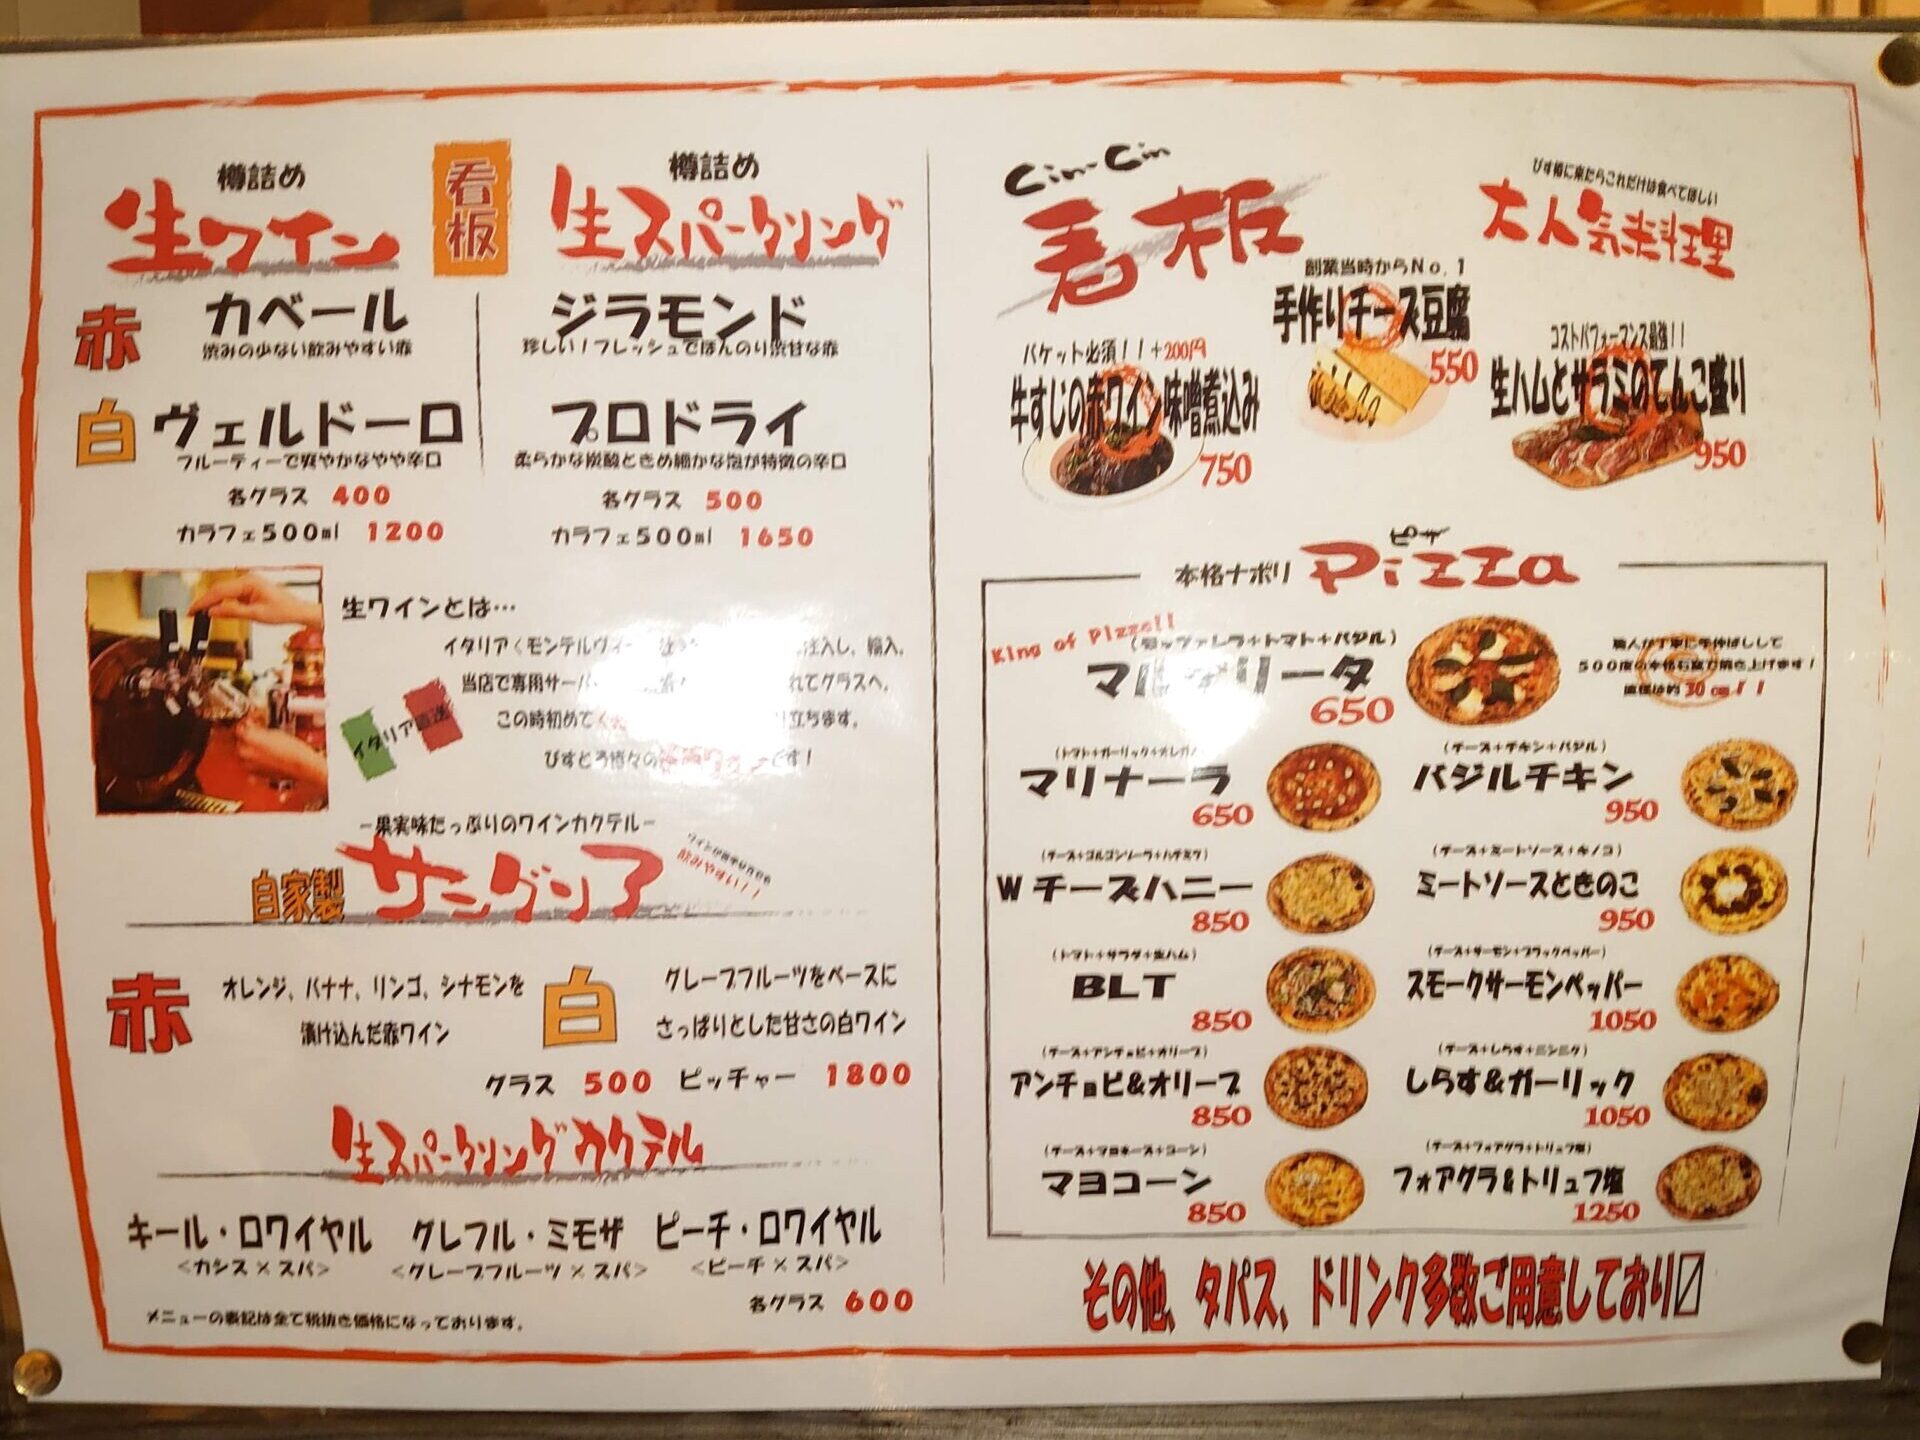 樽詰め
生ワイン
看板
樽詰め
生スパークリング
赤
カベール
渋みの少ない飲みやすい赤
ジラモンド
珍しい！フレッシュでほんのり渋甘な赤
白
ヴェルドーロ
フルーティーで爽やかなやや辛口
プロドライ
柔らかな炭酸ときめ細かな泡が特徴の辛口
各グラス 400
カラフェ500ml 1200
各グラス 500
カラフェ500ml 1650
生ワインとは…
イタリア＜モンテルヴィ 注入し、輸入。
当店で専用サー れてグラスへ。
この時初めて 立ちます。
イタリア直送
びすとろ椿々の です！
−果実味たっぷりのワインカクテル−
自家製 サングリア
飲みやすい！！
赤
オレンジ、バナナ、リンゴ、シナモンを
漬け込んだ赤ワイン
白
グレープフルーツをベースに
さっぱりとした甘さの白ワイン
グラス 500 ピッチャー 1800
生スパークリングカクテル
キール・ロワイヤル
＜カシス×スパ＞
グレフル・ミモザ
＜グレープフルーツ×スパ＞
ピーチ・ロワイヤル
＜ピーチ×スパ＞
各グラス 600
メニューの表記は全て税抜き価格になっております。
Cin-Cin
看板
びす椿に来たらこれだけは食べてほしい
大人気料理
バケット必須！！+200円
牛すじの赤ワイン味噌煮込み
750
創業当時からNo.1
手作りチーズ豆腐
550
コストパフォーマンス最強！！
生ハムとサラミのてんこ盛り
950
本格ナポリ
ピザ
Pizza
King of Pizza!!
(モッツァレラ+トマト+バジル)
マルゲリータ
650
職人が丁寧に手伸ばしして
500度の本格石窯で焼き上げます！
直径は約30cm！！
(トマト+ガーリック+オレガノ
マリナーラ
650
(チーズ+チキン+バジル)
バジルチキン
950
(チーズ+ゴルゴンゾーラ+ハチミツ)
Wチーズハニー
850
(チーズ+ミートソース+キノコ)
ミートソースときのこ
950
(トマト+サラダ+生ハム)
BLT
850
(チーズ+サーモン+ブラックペッパー)
スモークサーモンペッパー
1050
(チーズ+アンチョビ+オリーブ)
アンチョビ&オリーブ
850
(チーズ+しらす+ニンニク)
しらす&ガーリック
1050
(チーズ+マヨネーズ+コーン)
マヨコーン
850
(チーズ+フォアグラ+トリュフ塩)
フォアグラ&トリュフ塩
1250
その他、タパス、ドリンク多数ご用意しており〼